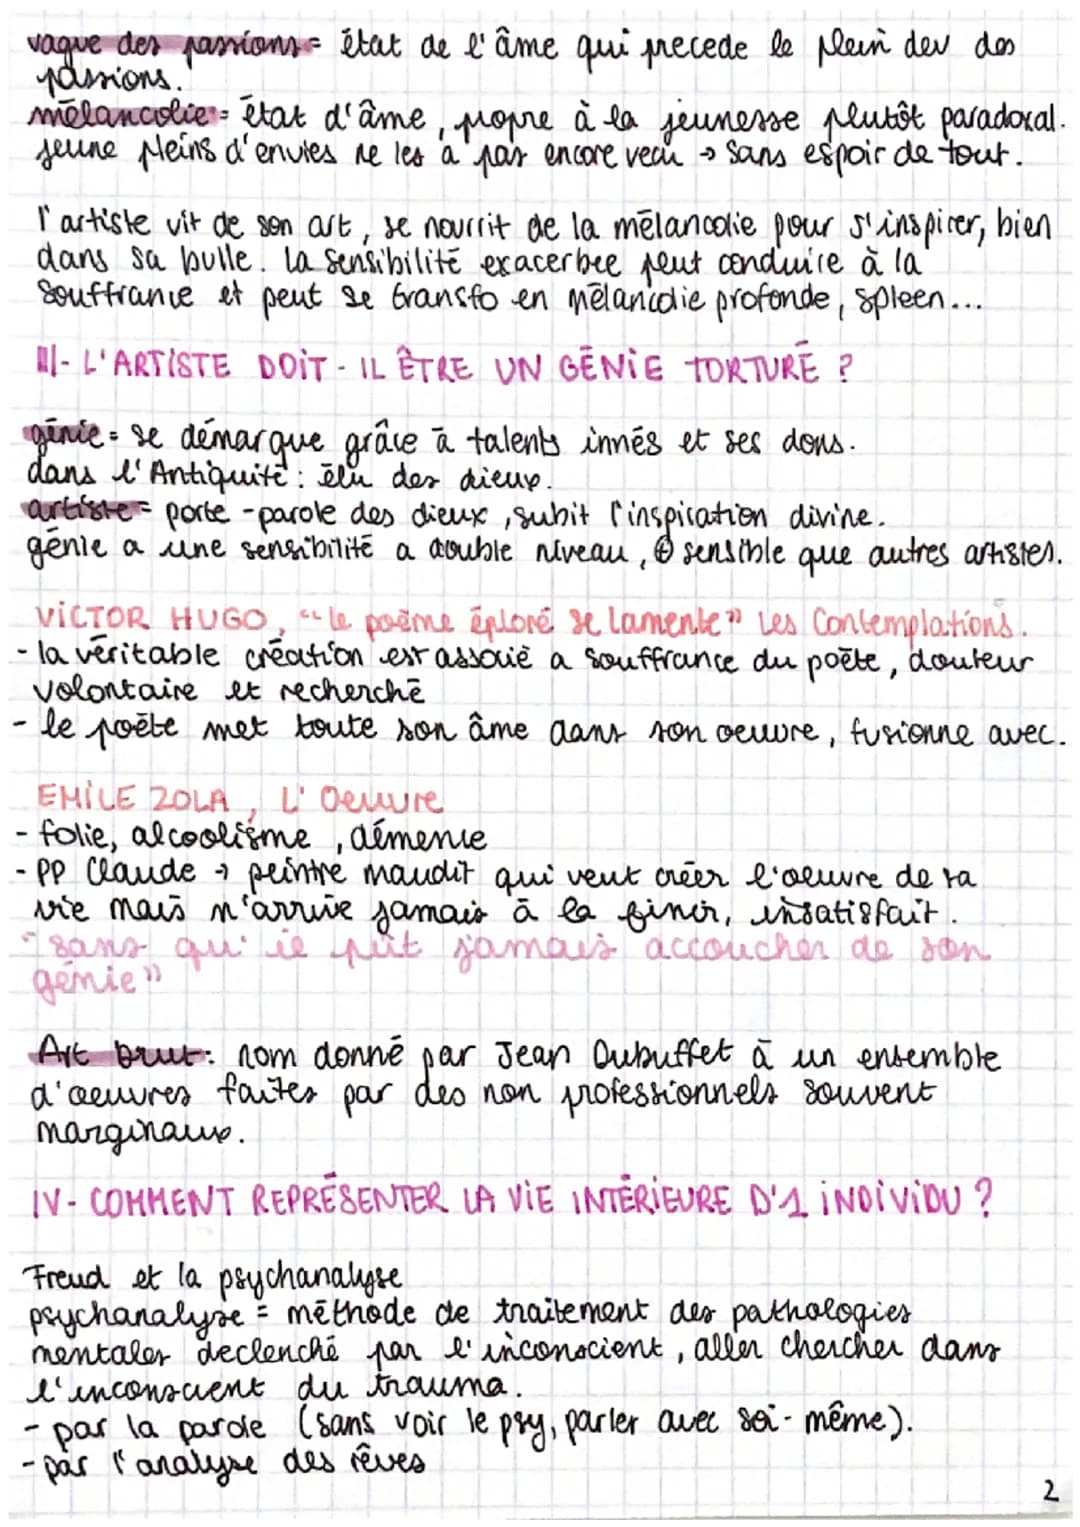 vague des passions = état de l'âme qui precede le plein dev des
passions.
mélancolie = état d'âme, propre à la jeunesse plutôt paradoxal.
jeune pleins d'envies ne les a pas encore vecu → sans espoir de tout.
l'artiste vit de son art, se nourrit de la mélancolie pour s'inspirer, bien
dans sa bulle. la sensibilité exacerbee peut conduire à la
souffrance et peut se transfo en mélancolie profonde, spleen...
III- L'ARTISTE DOIT-IL ÊTRE UN GÉNIE TORTURÉ ?
génie = se démarque grâce à talents innés et ses dons.
dans l'Antiquité : élu des dieux.
artiste = porte-parole des dieux, subit l'inspiration divine.
génie a une sensibilité a double niveau, ⊕ sensible que autres artistes.
VICTOR HUGO, "le poème éploré se lamente" Les Contemplations.
- la véritable création est associé a souffrance du poète, douleur
volontaire et recherché
- le poète met toute son âme dans son oeuvre, fusionne avec.
EMILE ZOLA, L'Oeuvre
- folie, alcoolisme, démence
- PP Claude → peintre maudit qui veut créer l'oeuvre de sa
vie mais n'arrive jamais à la finir, insatisfait.
"sans qu'il pût jamais accoucher de son
génie"
Art brut : nom donné par Jean Dubuffet à un ensemble
d'oeuvres faites par des non professionnels souvent
marginaux.
IV- COMMENT REPRÉSENTER LA VIE INTÉRIEURE D'1 INDIVIDU ?
Freud et la psychanalyse
psychanalyse = méthode de traitement des pathologies
mentales declenché par l'inconscient, aller chercher dans
l'inconscient du trauma.
- par la parole (sans voir le psy, parler avec soi-même).
- par l'analyse des rêves
2